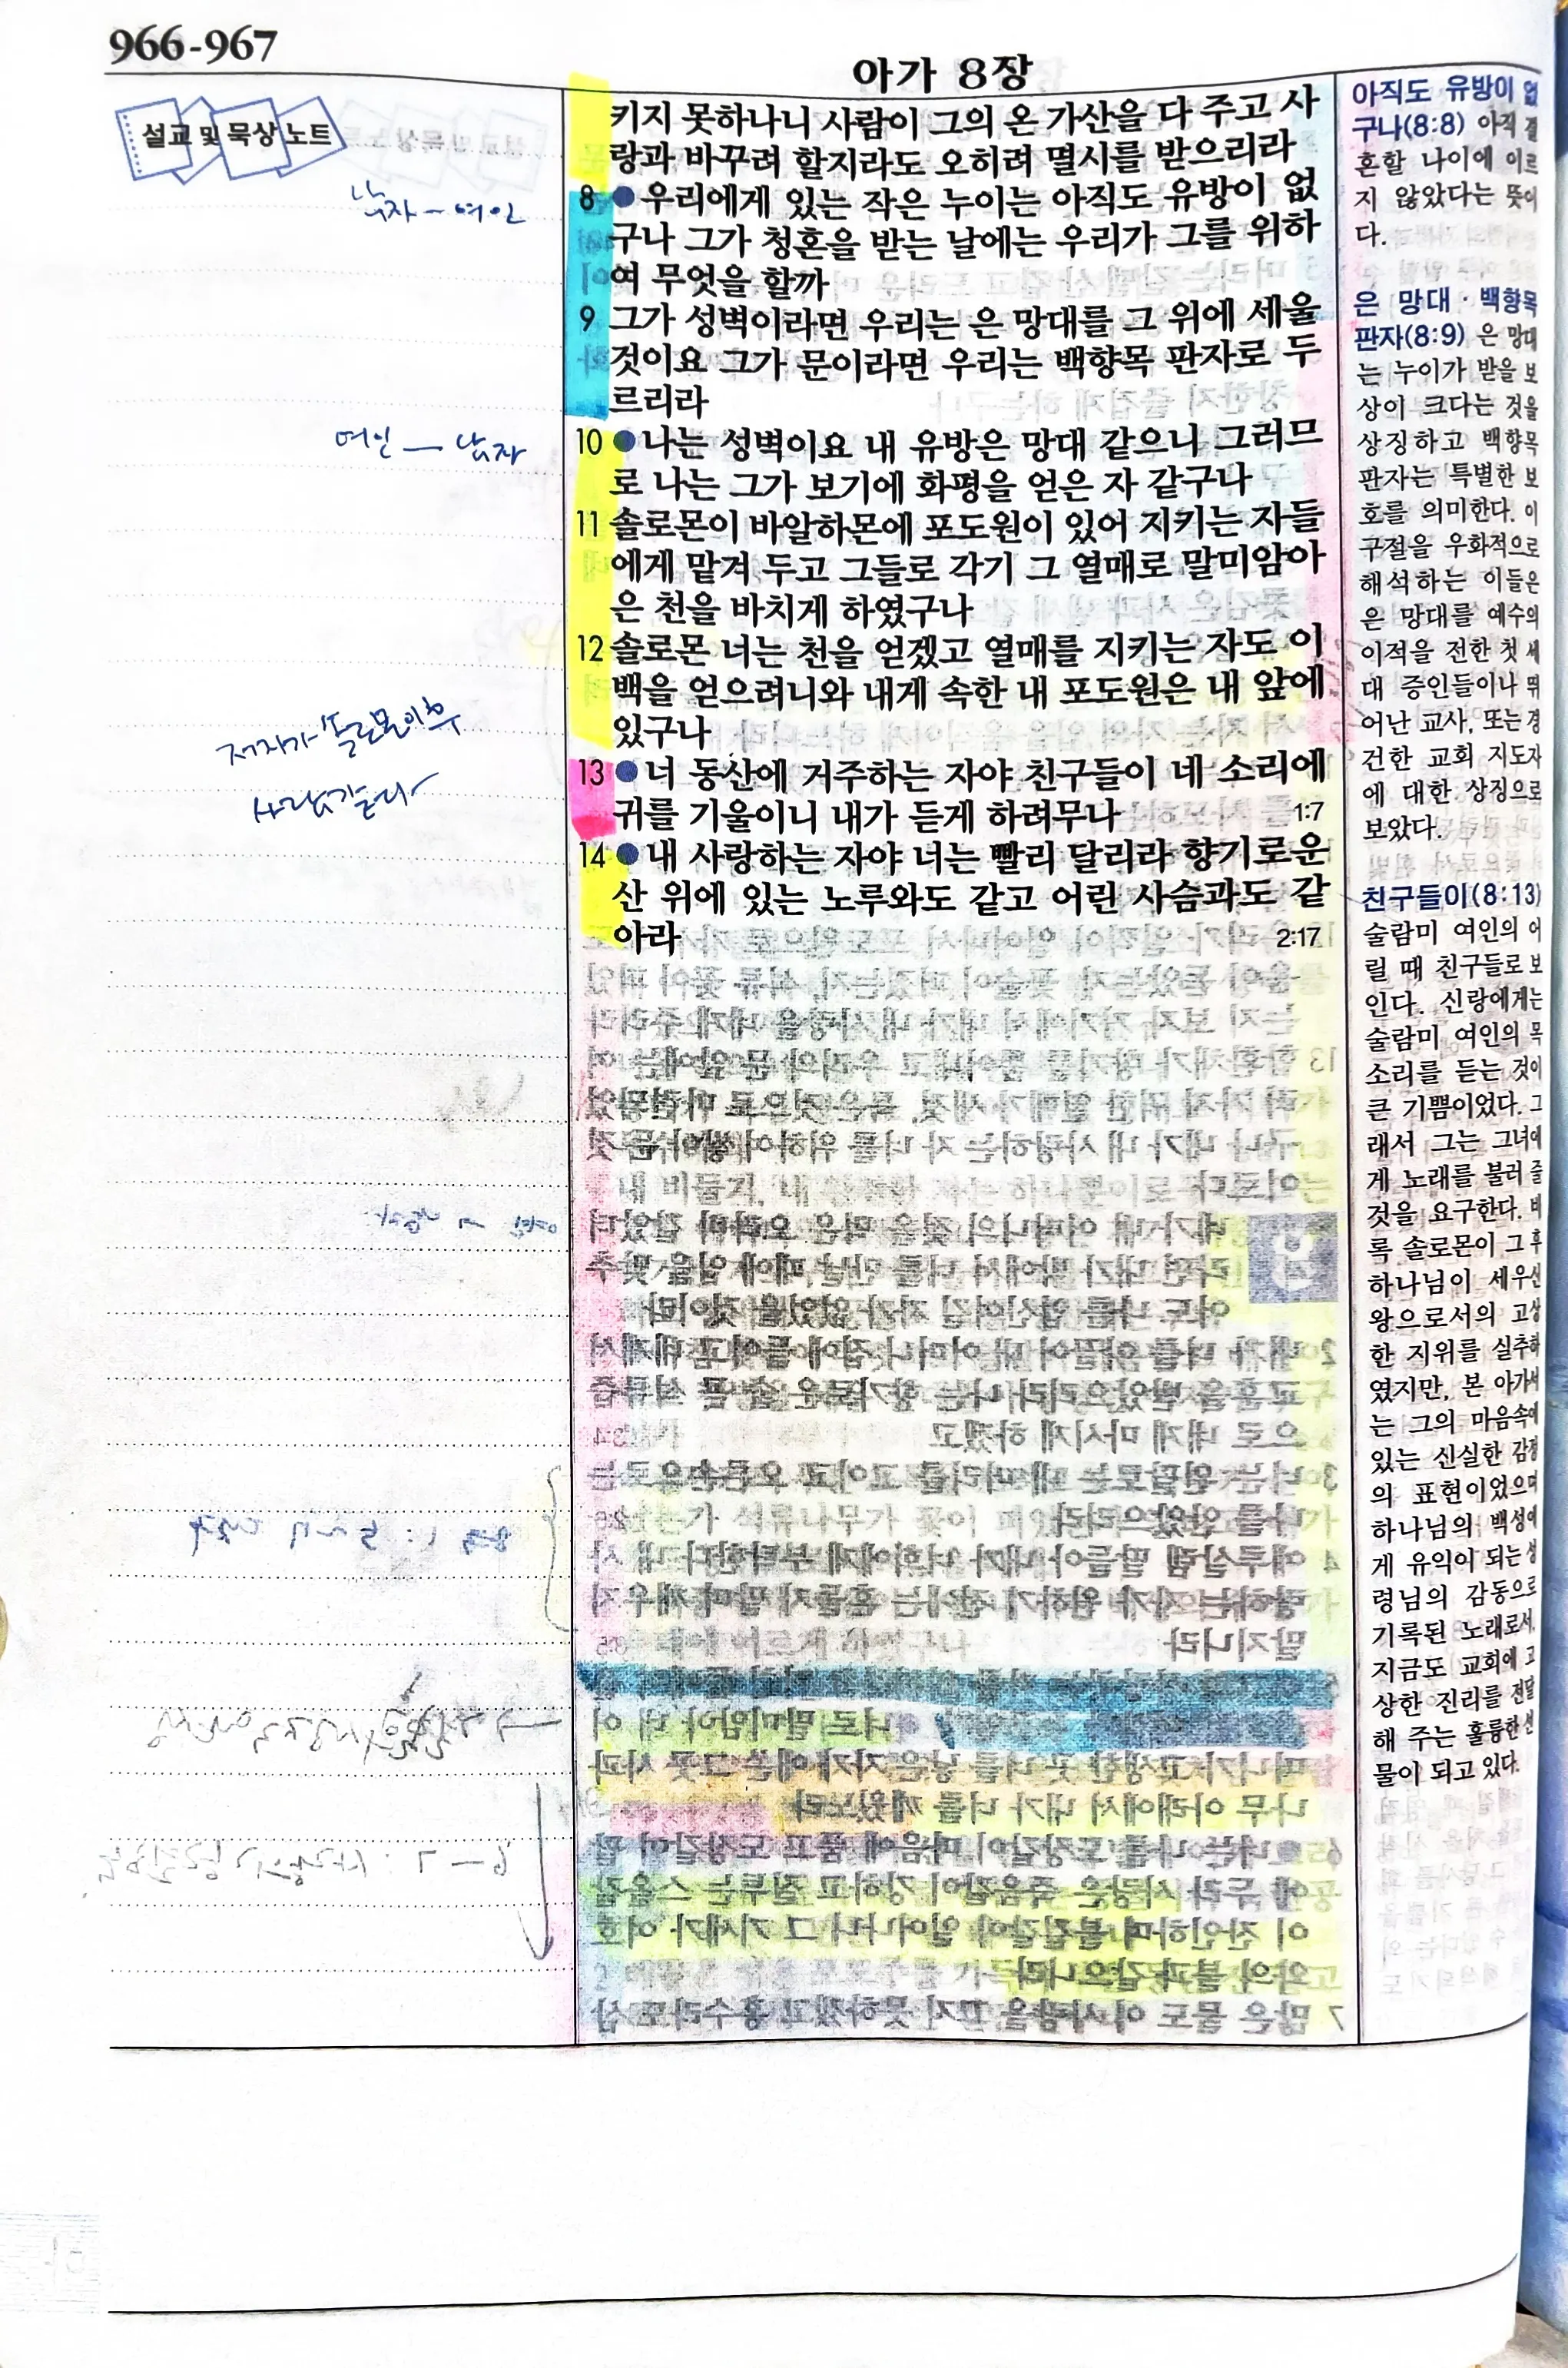 966-967
아가 8장
설교 및 묵상 노트
남자 - 여인
여인 — 남자
저자가 솔로몬이후
사람같다
키지 못하나니 사람이 그의 온 가산을 다 주고 사
랑과 바꾸려 할지라도 오히려 멸시를 받으리라
8 ●우리에게 있는 작은 누이는 아직도 유방이 없
구나 그가 청혼을 받는 날에는 우리가 그를 위하
여 무엇을 할까
9 그가 성벽이라면 우리는 은 망대를 그 위에 세울
것이요 그가 문이라면 우리는 백향목 판자로 두
르리라
10 ●나는 성벽이요 내 유방은 망대 같으니 그러므
로 나는 그가 보기에 화평을 얻은 자 같구나
11 솔로몬이 바알하몬에 포도원이 있어 지키는 자들
에게 맡겨 두고 그들로 각기 그 열매로 말미암아
은 천을 바치게 하였구나
12 솔로몬 너는 천을 얻겠고 열매를 지키는 자도 이
백을 얻으려니와 내게 속한 내 포도원은 내 앞에
있구나
13 ●너 동산에 거주하는 자야 친구들이 네 소리에
귀를 기울이니 내가 듣게 하려무나 1:7
14 ●내 사랑하는 자야 너는 빨리 달리라 향기로운
산 위에 있는 노루와도 같고 어린 사슴과도 같
아라 2:17
아직도 유방이 없
구나(8:8) 아직 결
혼할 나이에 이르
지 않았다는 뜻이
다.
은 망대 · 백향목
판자(8:9) 은 망대
는 누이가 받을 보
상이 크다는 것을
상징하고 백향목
판자는 특별한 보
호를 의미한다. 이
구절을 우화적으로
해석하는 이들은
은 망대를 예수의
이적을 전한 첫 세
대 증인들이나 뛰
어난 교사, 또는 경
건한 교회 지도자
에 대한 상징으로
보았다.
친구들이(8:13)
술람미 여인의 어
릴 때 친구들로 보
인다. 신랑에게는
술람미 여인의 목
소리를 듣는 것이
큰 기쁨이었다. 그
래서 그는 그녀에
게 노래를 불러 줄
것을 요구한다. 비
록 솔로몬이 그 후
하나님이 세우신
왕으로서의 고상
한 지위를 실추하
였지만, 본 아가서
는 그의 마음속에
있는 신실한 감정
의 표현이었으며
하나님의 백성에
게 유익이 되는 성
령님의 감동으로
기록된 노래로서,
지금도 교회에 고
상한 진리를 전달
해 주는 훌륭한 선
물이 되고 있다.